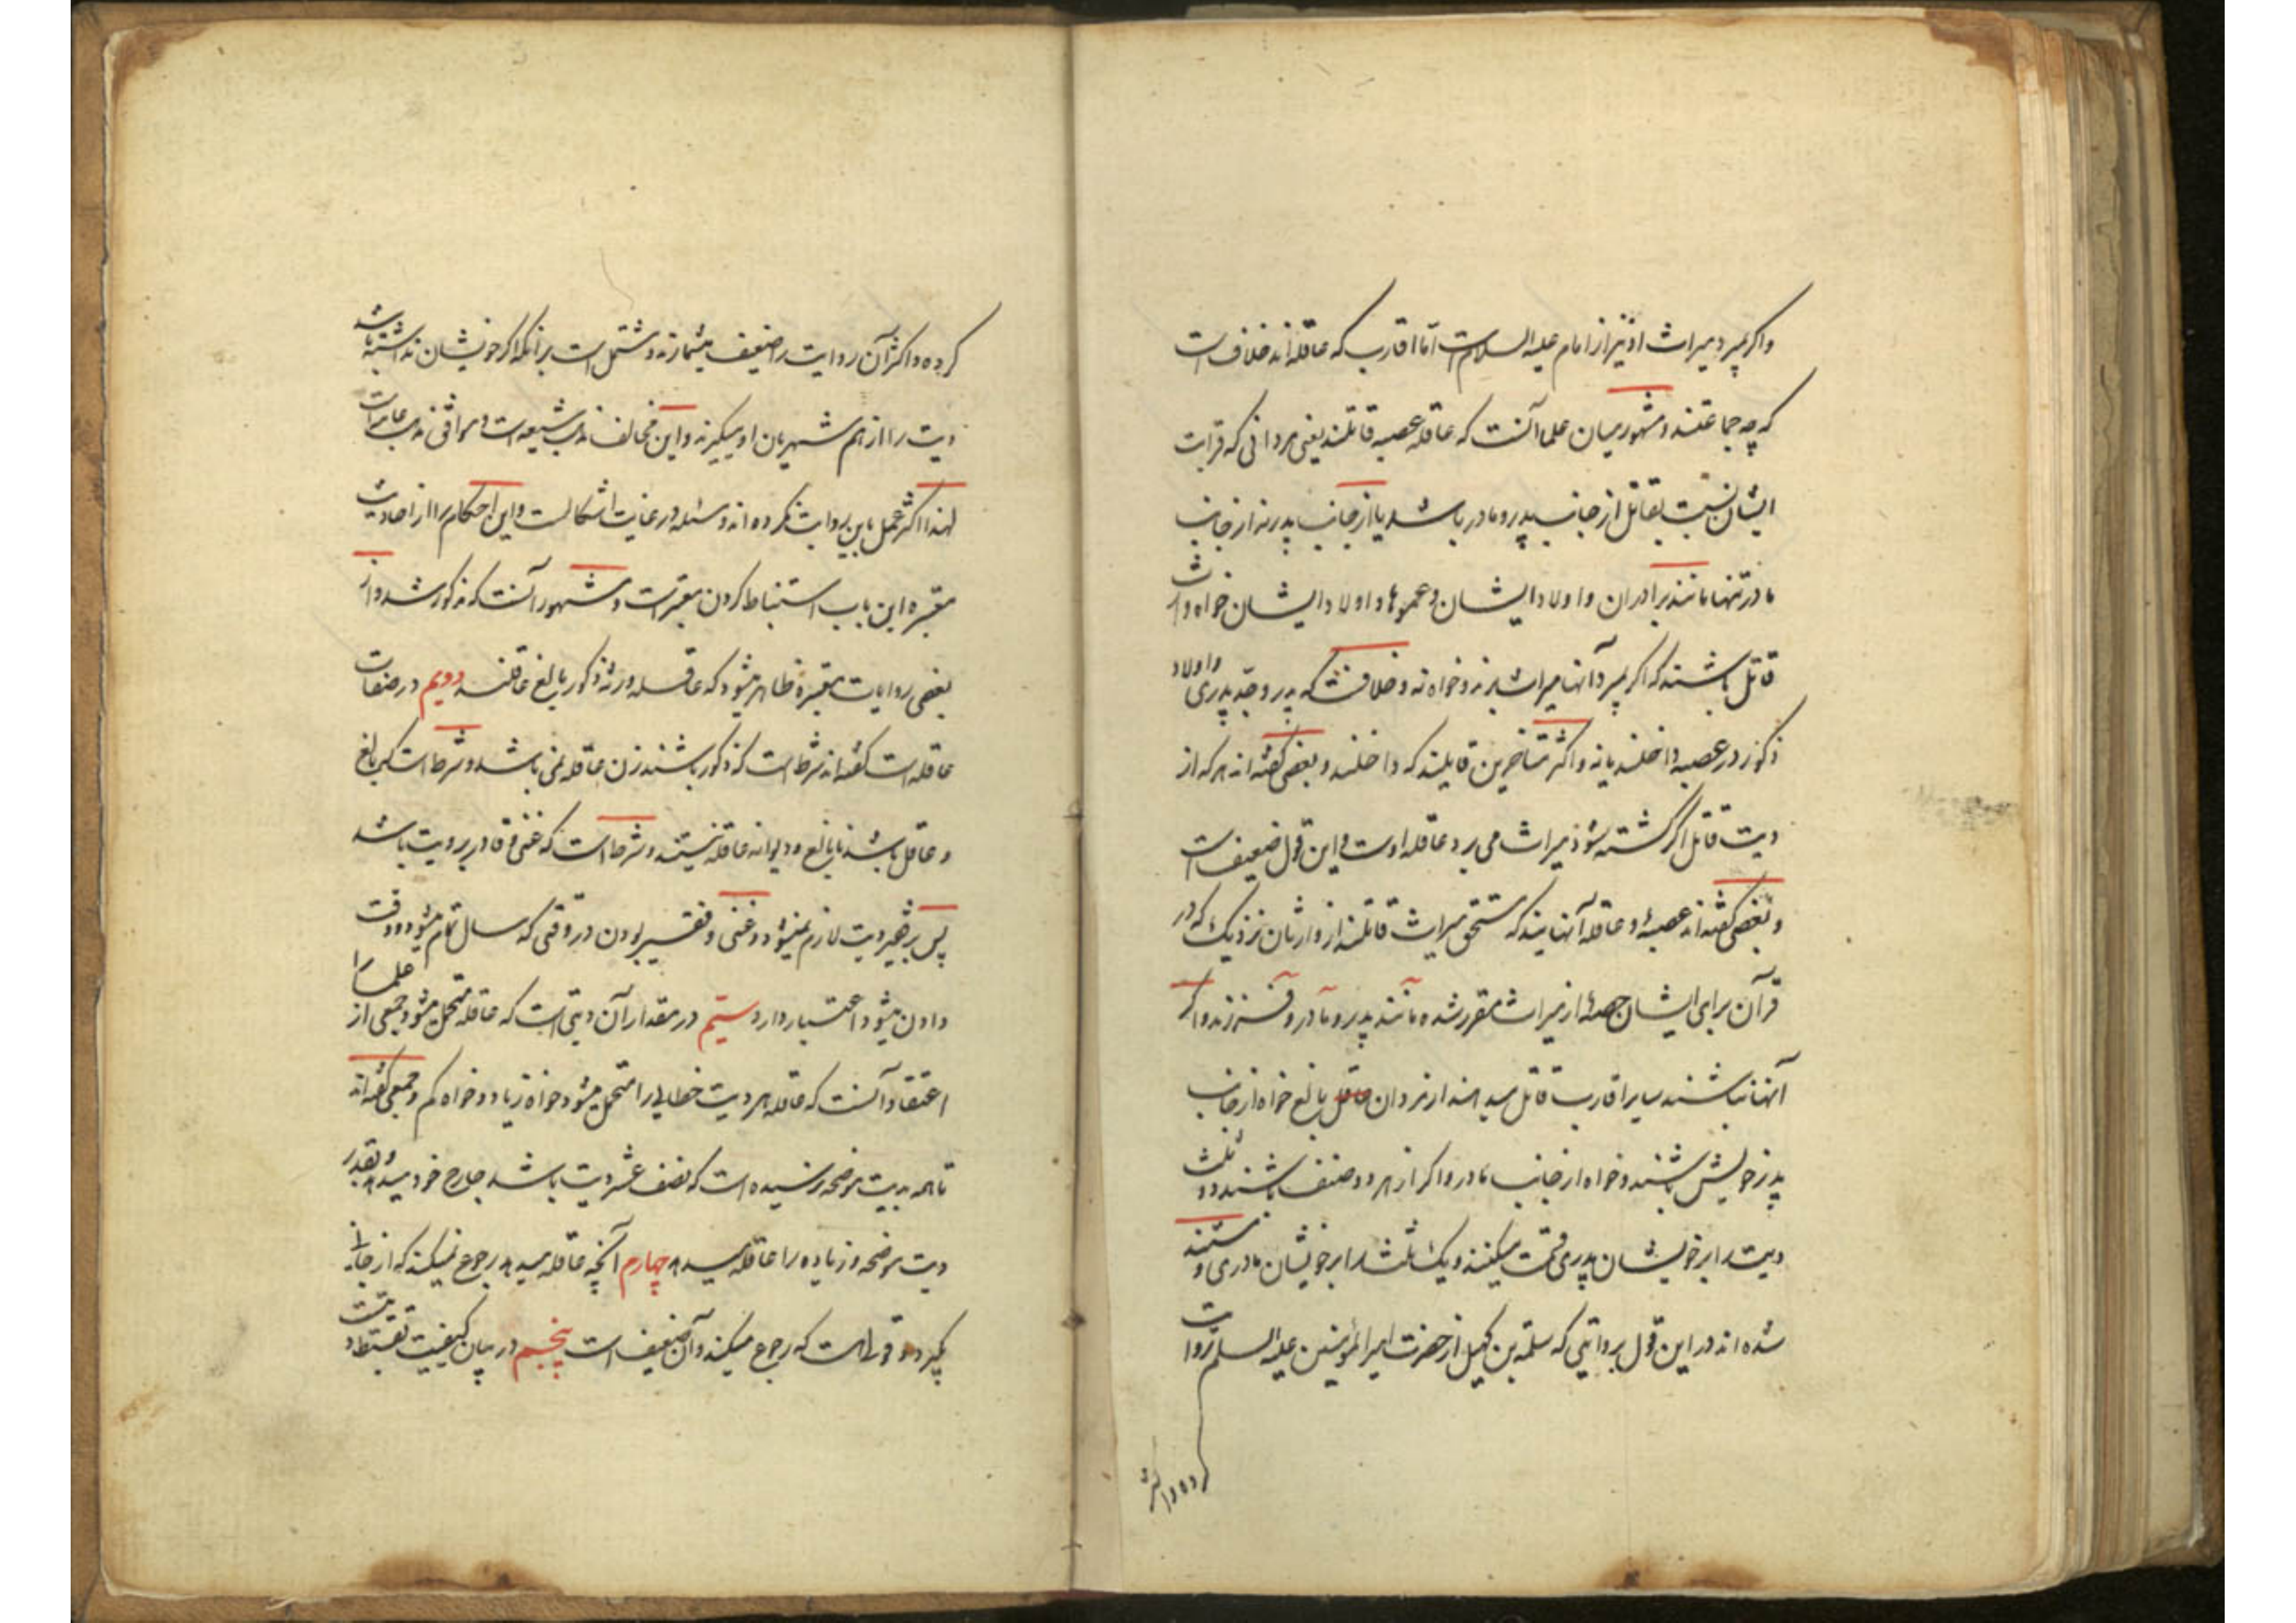 واکر بمیرد میراث او نیز از امام علیه السلام است اما اقارب که عاقله اند خلاف است
که چه جماعتند و مشهور میان علما آنست که عاقله عصبه قاتلند یعنی مردانی که قرابت
ایشان نسبت بقاتل از جانب پدر و مادر باشد یا از جانب پدر نه از جانب
مادر تنها مانند برادران و اولاد ایشان و عموها و اولاد ایشان خواه وارث
قاتل باشند که اکر بمیرد آنها میراث برند و خواه نه و خلافست که پدر و جد پدری و اولاد
ذکور در عصبه داخلند یا نه و اکثر متاخرین قایلند که داخلند و بعضی کفته اند هر که از
دیت قاتل اکر کشته شود میراث می برد عاقله اوست و این قول ضعیف است
و بعضی کفته اند عصبه و عاقله آنهایند که مستحق میراث قاتلند از وارثان نزدیک که در
قرآن برای ایشان حصه از میراث مقرر شده مانند پدر و مادر و فرزند و اکر
آنها نباشند سایر اقارب قاتل میدهند از مردان عاقل بالغ خواه از جانب
پدر خویش باشند و خواه از جانب مادر و اکر از هر دو صنف باشند دو ثلث
دیت را بر خویشان پدری قسمت میکنند و یک ثلث را بر خویشان مادری و مستند
شده اند در این قول بروایتی که سلمة بن کهیل از حضرت امیر المؤمنین علیه السلم روایت
کرده و اکثر
کرده و اکثر آن روایت را ضعیف میشمارند و مشتمل است بر آنکه اکر خویشان نداشته باشد
دیت را از هم شهریان او میکیرند و این مخالف مذهب شیعه است و موافق مذهب عامه است
لهذا اکثر عمل باین روایت نکرده اند و مسئله در غایت اشکالست و این احکام را از احادیث
معتبره این باب استنباط کردن متعسر است و مشهور آنست که مذکور شد و از
بعضی روایات معتبره ظاهر میشود که عاقله ورثه ذکور بالغ عاقلند دویم در صفات
عاقله است کفته اند شرط است که ذکور باشند زن عاقله نمی باشد و شرط است که بالغ
و عاقل باشند نابالغ و دیوانه عاقله نیستند و شرط است که غنی و قادر بر دیت باشد
پس بر فقیر دیت لازم نمیشود و غنی و فقیر بودن در وقتی که سال تمام میشود و وقت
دادن میشود اعتبار دارد سیم در مقدار آن دیتی است که عاقله متحمل میشود جمعی از علما را
اعتقاد آنست که عاقله هر دیت خطایی را متحمل میشود خواه زیاد و خواه کم و جمعی کفته اند
تا همه بدیت موضحه نرسیده است که نصف عشر دیت باشد جارح خود میدهد و بقدر
دیت موضحه و زیاده را عاقله میدهد چهارم آنچه عاقله میدهد رجوع نمیکند که از جانی
بکیرد و قولی هست که رجوع میکند و آن ضعیف است پنجم در بیان کیفیت تقسیط دیت